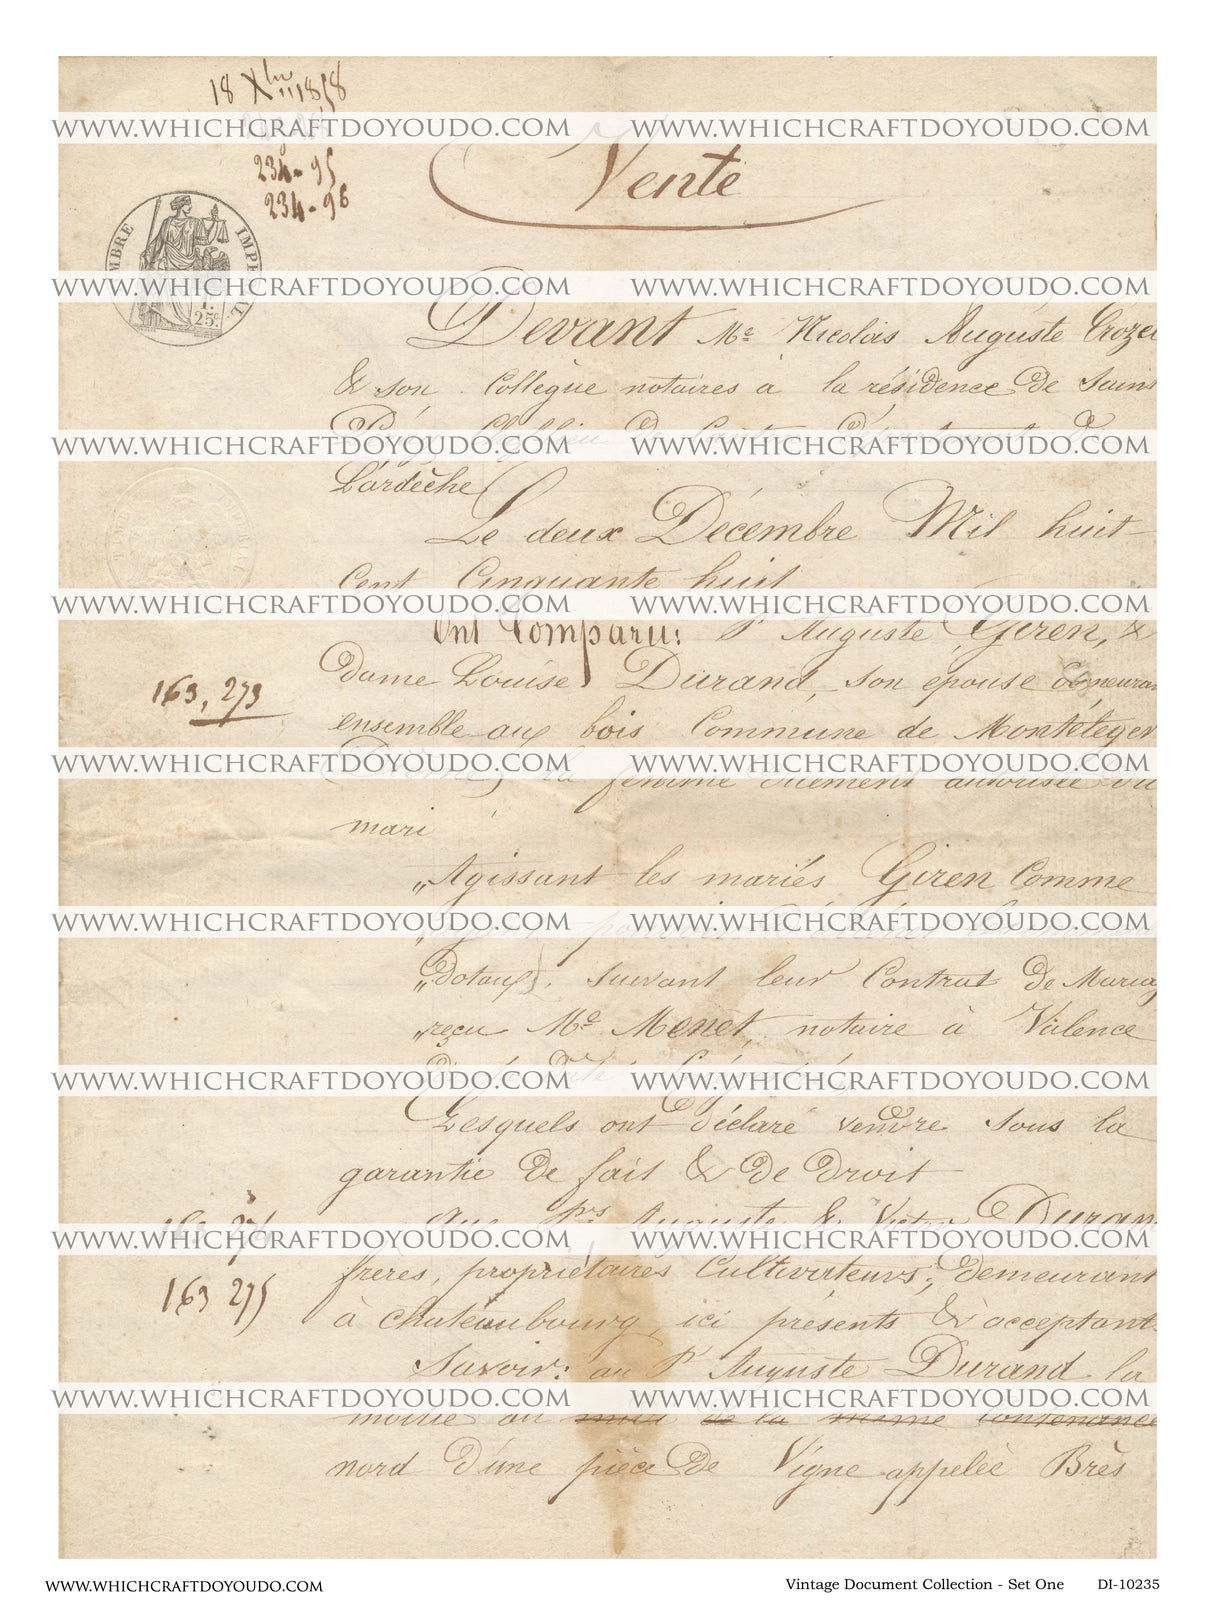 18 Xbre 1858
234-95
234-96
Vente
TIMBRE IMPERIAL
1.
25c.
Devant Me Nicolas Auguste Crozet
& son Collègue notaires à la résidence de Saint
L'ardèche
Le deux Décembre Mil huit
Cent Cinquante huit
Ont Comparu: Sr Auguste Giren, &
dame Louise Durand, son epouse demeurant
163, 273
ensemble aux bois Commune de Monteleger
la femme duement autorisée du
mari
„Agissant les mariés Giren Comme
„dotaux), suivant leur Contrat de Mariag
„reçu Me Menet, notaire à Valence
Lesquels ont déclaré vendre sous la
garantie de fait & de droit
Aux Srs Auguste & Victor Durand
163 276
frères, propriétaires Cultivateurs, demeurant
163 275
à chateaubourg, ici présents & acceptant.
Savoir: au Sr Auguste Durand la
moitié au de la même Contenance
nord d'une pièce de Vigne appelée Brès
WWW.WHICHCRAFTDOYOUDO.COM WWW.WHICHCRAFTDOYOUDO.COM
WWW.WHICHCRAFTDOYOUDO.COM WWW.WHICHCRAFTDOYOUDO.COM
WWW.WHICHCRAFTDOYOUDO.COM WWW.WHICHCRAFTDOYOUDO.COM
WWW.WHICHCRAFTDOYOUDO.COM WWW.WHICHCRAFTDOYOUDO.COM
WWW.WHICHCRAFTDOYOUDO.COM WWW.WHICHCRAFTDOYOUDO.COM
WWW.WHICHCRAFTDOYOUDO.COM WWW.WHICHCRAFTDOYOUDO.COM
WWW.WHICHCRAFTDOYOUDO.COM WWW.WHICHCRAFTDOYOUDO.COM
WWW.WHICHCRAFTDOYOUDO.COM WWW.WHICHCRAFTDOYOUDO.COM
WWW.WHICHCRAFTDOYOUDO.COM WWW.WHICHCRAFTDOYOUDO.COM
WWW.WHICHCRAFTDOYOUDO.COM Vintage Document Collection - Set One DI-10235